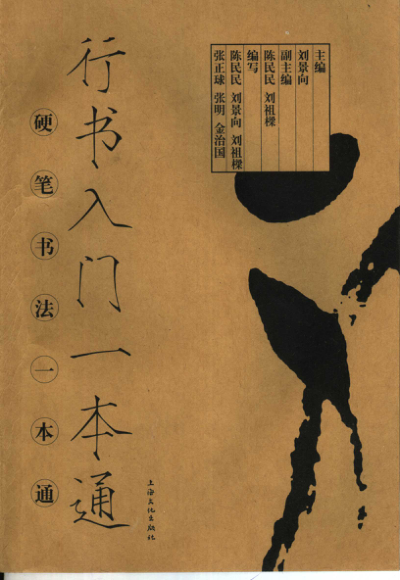 主编
刘景向
副主编
陈民民 刘祖樑
编写
陈民民 刘景向 刘祖樑
张正球 张明 金治国
行书入门一本通
硬笔书法一本通
上海文化出版社